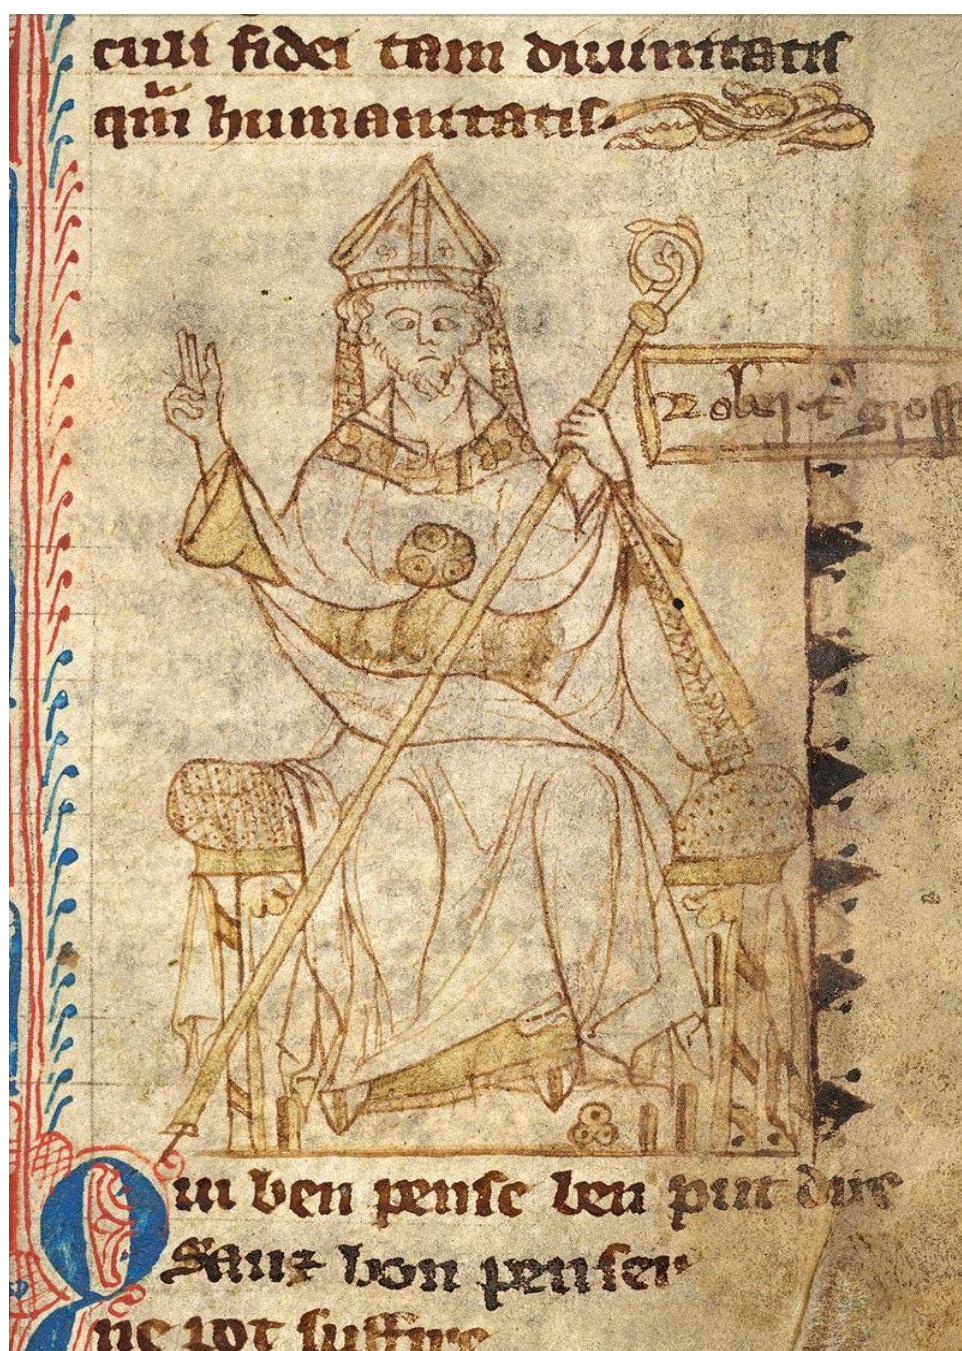 culi fidei tam diuinitatis
qm̅ humanitatis.
gross
Qui ben pense ben put dire
Sanz bon penser
ne pot suffire